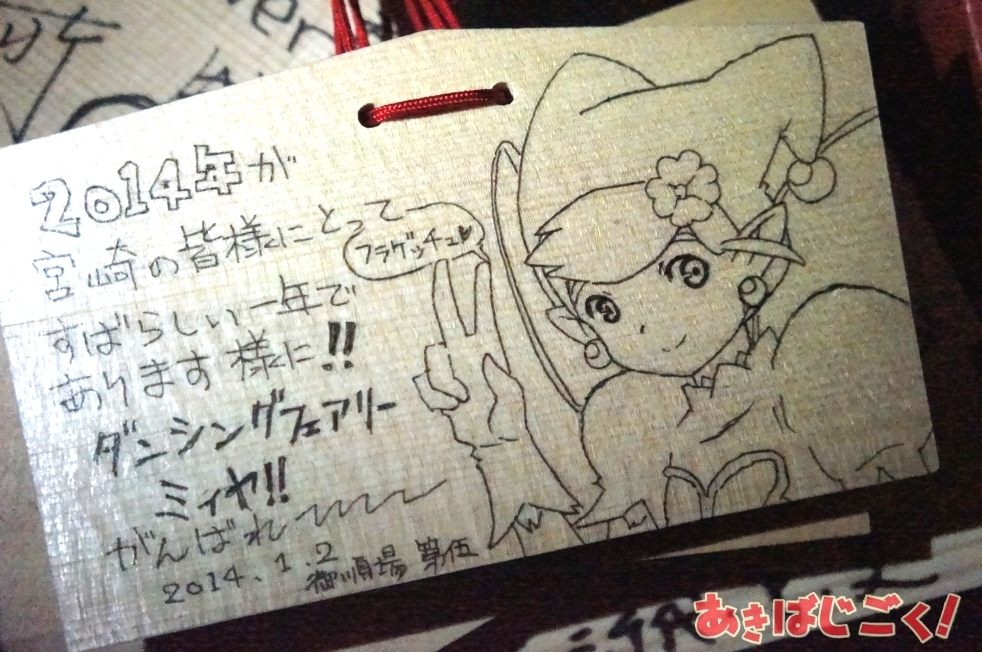 2014年が
宮崎の皆様にとって
フラゲッチュ♥
すばらしい一年で
あります様に!!
ダンシングフェアリー
ミィヤ!!
がんばれ
2014.1.2
御順場 第伍
あきばじごく!